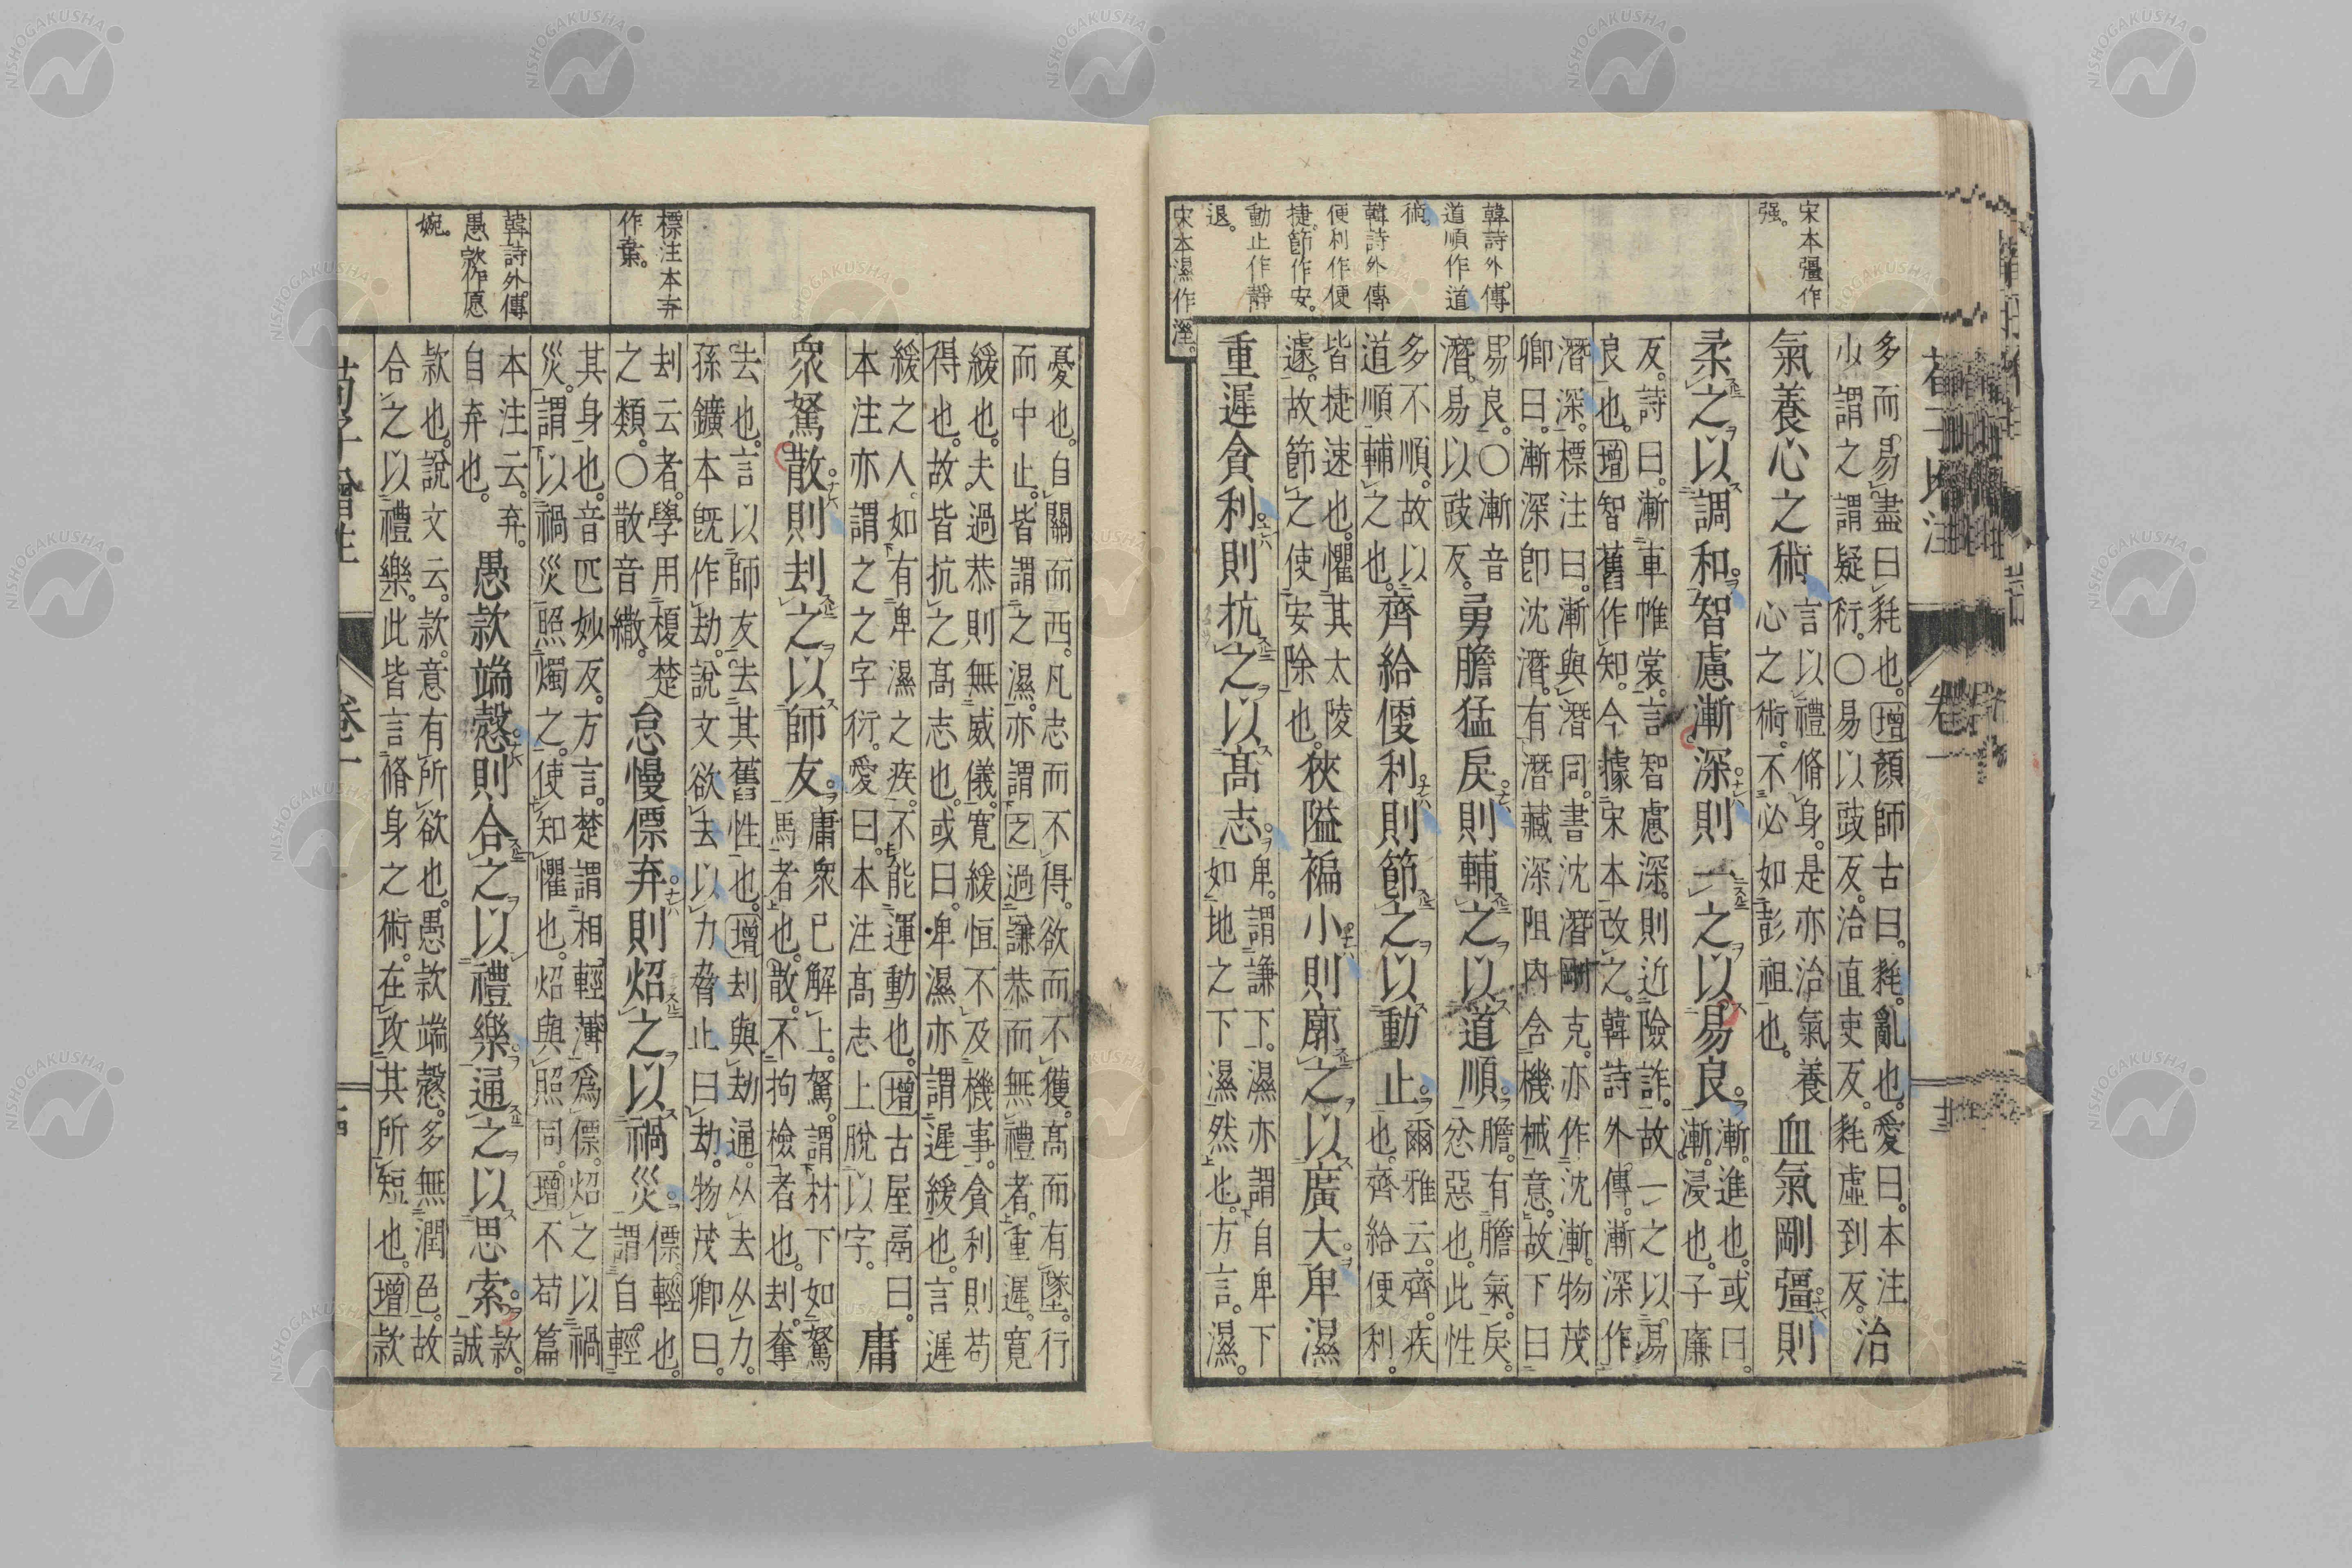 宋本彊作
强。
韓詩外傳
道順作道
術。
韓詩外傳
便利作便
捷。節作安。
動止作靜
退。
宋本濕作溼。
多而易盡曰耗也。增顏師古曰。耗。亂也。愛曰。本注
少謂之謂疑衍。〇易以豉反。治直吏反。耗虛到反。
治
氣養心之術
言以禮脩身。是亦治氣養
心之術。不必如彭祖也。
血氣剛彊則
柔之以調和。智慮漸深則一之以易良。
漸。進也。或曰。
漸。浸也。子廉
反。詩曰。漸車帷裳。言智慮深。則近險詐。故一之以易
良也。增智舊作知。今據宋本改之。韓詩外傳。漸深作
潛深。標注曰。漸與潛同。書沈潛剛克。亦作沈漸。物茂
卿曰。漸深卽沈潛。有潛藏深阻內含機械意。故下曰
易良。〇漸音
潛。易以豉反。
勇膽猛戾則輔之以道順。
膽。有膽氣。戾。
忿惡也。此性
多不順。故以
道順輔之也。
齊給便利則節之以動止。
爾雅云。齊。疾
也。齊給便利。
皆捷速也。懼其太陵
遽。故節之使安除也。
狹隘褊小則廓之以廣大。卑濕
重遲貪利則抗之以高志。
卑。謂謙下。濕亦謂自卑下
如地之下濕然也。方言。濕。
荀子
注
卷一
標注本弃
作棄。
韓詩外傳
愚欵作愿
婉。
憂也。自關而西。凡志而不得。欲而不獲。高而有墜。行
而中止。皆謂之濕。亦謂之過謙恭而無禮者。重遲。寬
緩也。夫過恭則無威儀。寬緩恒不及機事。貪利則苟
得也。故皆抗之高志也。或曰。卑濕亦謂遲緩也。言遲
緩之人。如有卑濕之疾。不能運動也。增古屋鬲曰。
本注亦謂之之字衍。愛曰。本注高志上脫以字。
庸
衆駑散則刦之以師友。
庸衆已解上。駑。謂材下如駑
馬者也。散。不拘檢者也。刦。奪
去也。言以師友去其舊性也。增刦與劫通。从去从力。
孫鑛本既作劫。說文欲去以力脅止曰劫。物茂卿曰。
刦云者。學用榎楚
之類。〇散音繖。
怠慢僄弃則炤之以禍災。
僄輕也。
謂自輕
其身也。音匹妙反。方言。楚謂相輕薄爲僄。炤之以禍
災。謂以禍災照燭之。使知懼也。炤與照同。增不苟篇
本注云。弃。
自弃也。
愚款端愨則合之以禮樂。通之以思索。
款。
誠
款也。說文云。款。意有所欲也。愚款端愨。多無潤色。故
合之以禮樂。此皆言脩身之術。在攻其所短也。增款
荀子增注
卷一